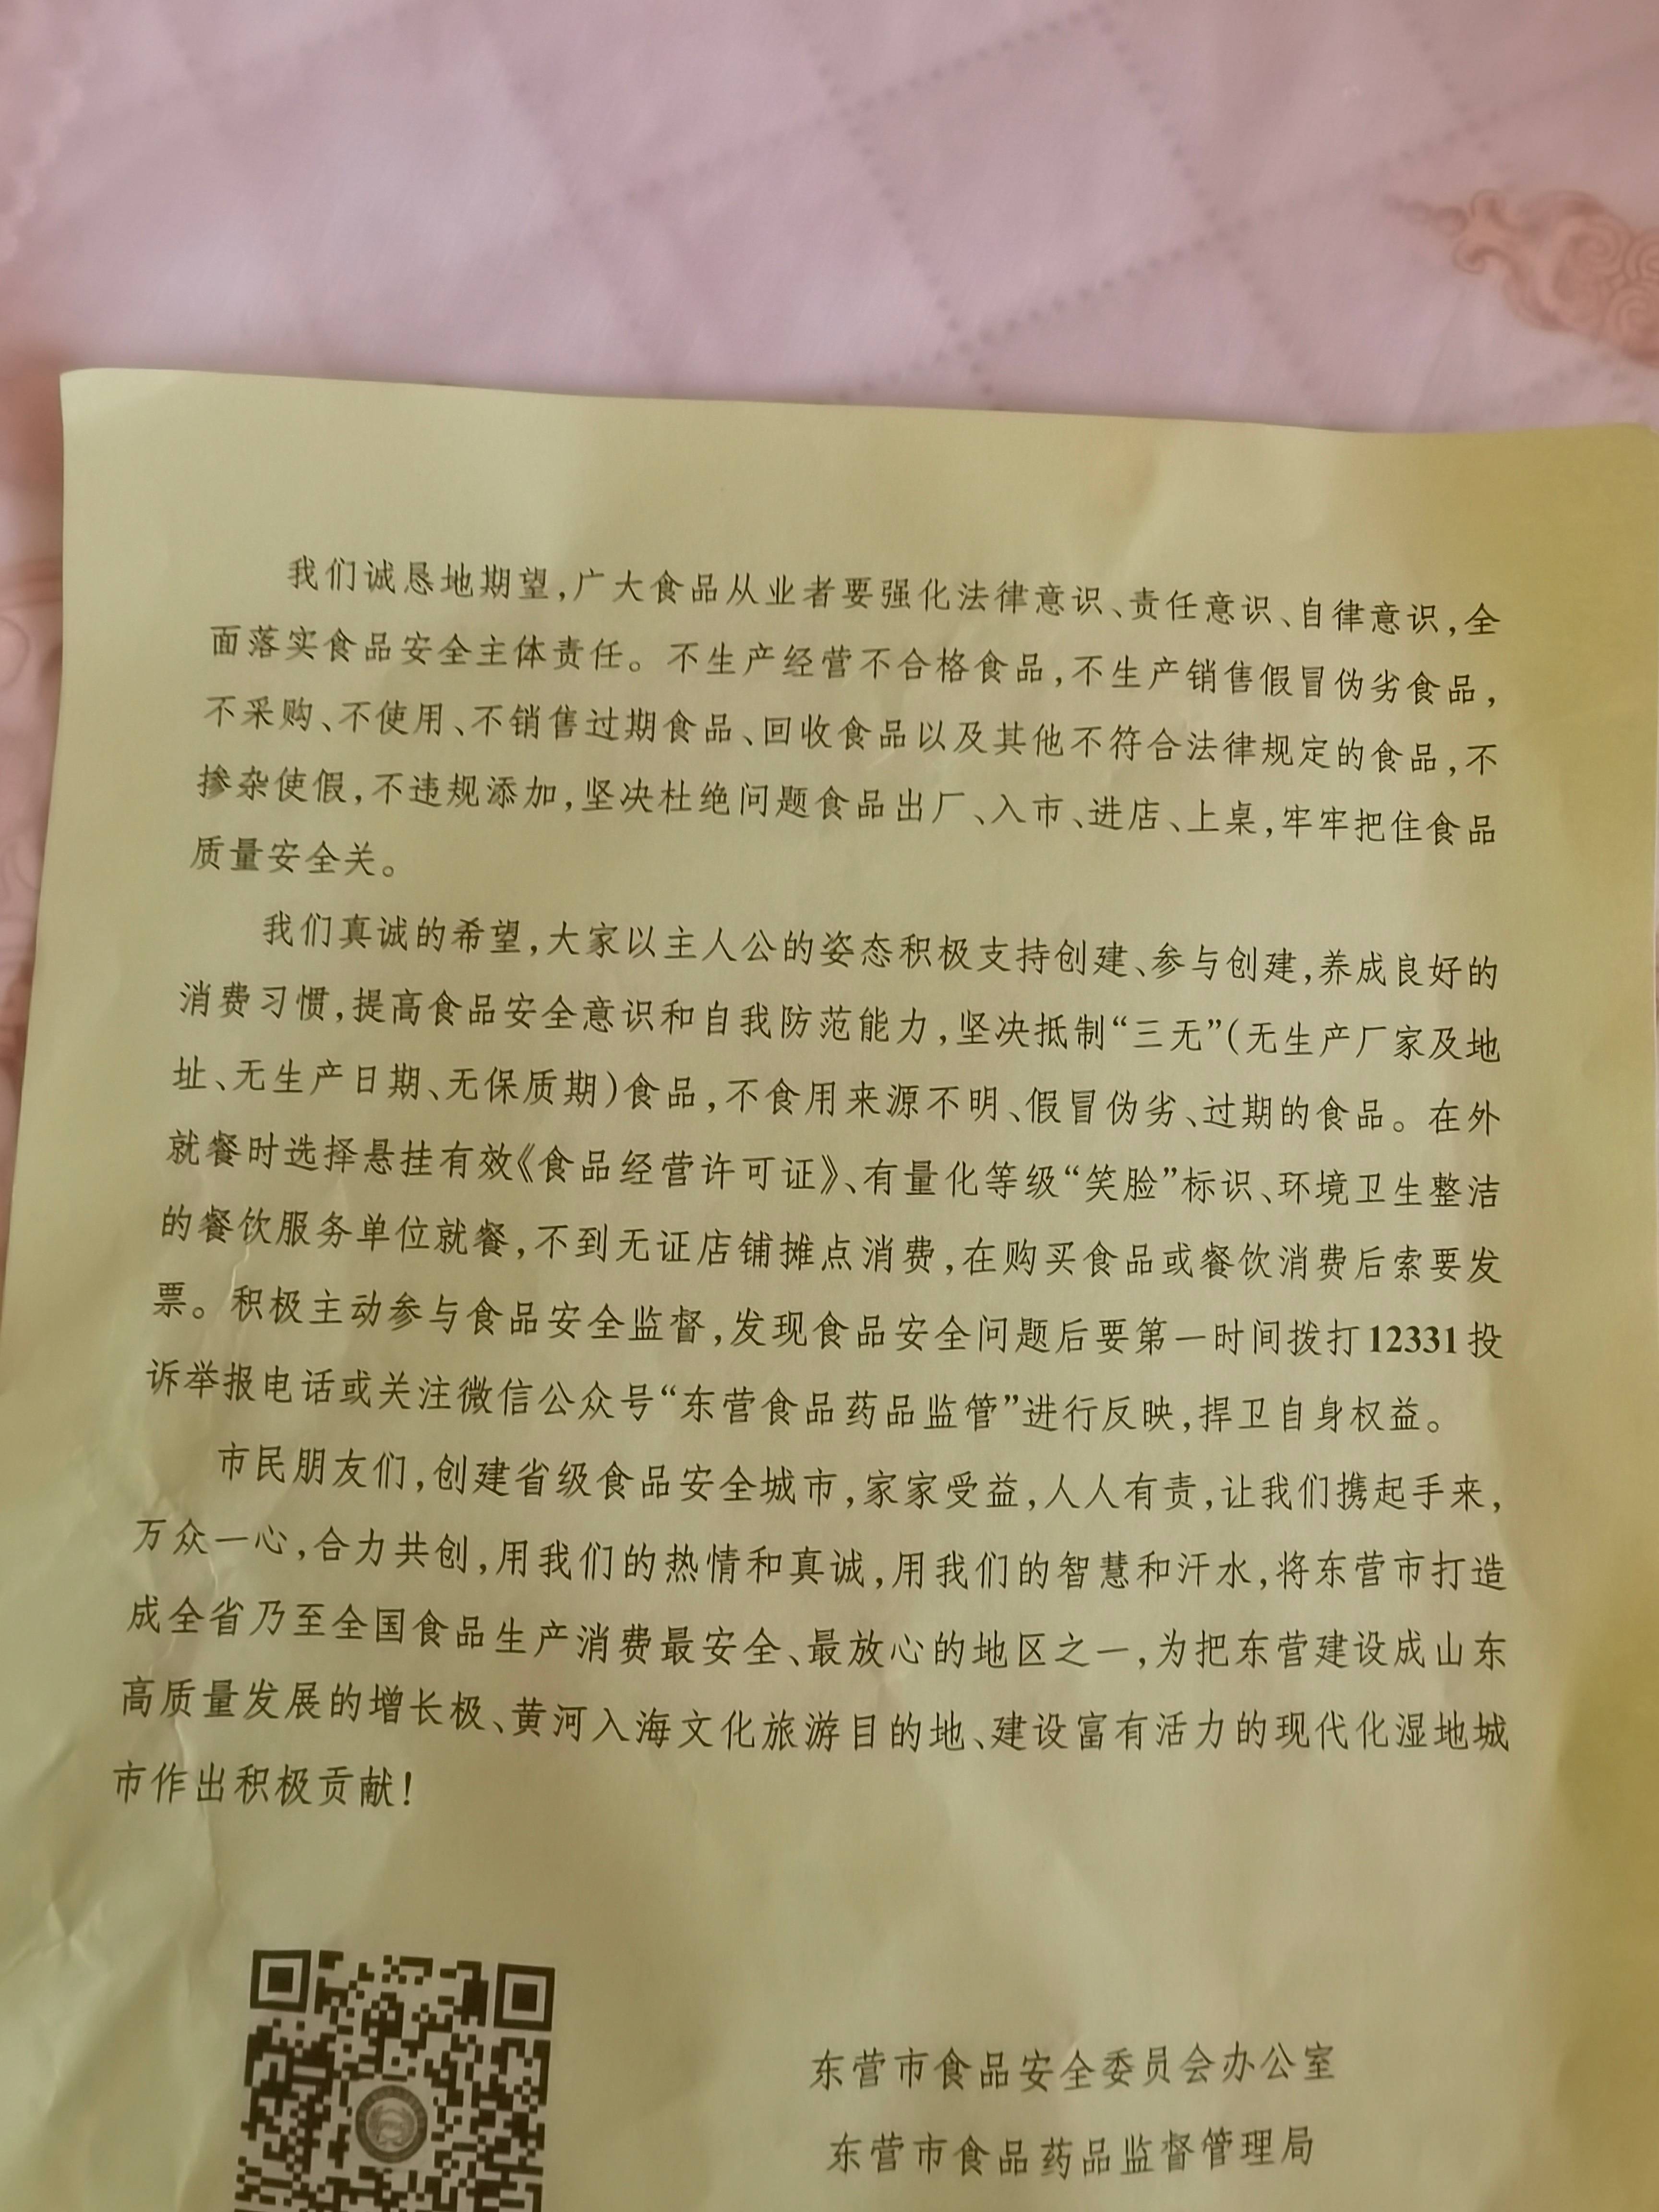 我们诚恳地期望,广大食品从业者要强化法律意识、责任意识、自律意识,全
面落实食品安全主体责任。不生产经营不合格食品,不生产销售假冒伪劣食品,
不采购、不使用、不销售过期食品、回收食品以及其他不符合法律规定的食品,不
掺杂使假,不违规添加,坚决杜绝问题食品出厂、入市、进店、上桌,牢牢把住食品
质量安全关。
我们真诚的希望,大家以主人公的姿态积极支持创建、参与创建,养成良好的
消费习惯,提高食品安全意识和自我防范能力,坚决抵制“三无”(无生产厂家及地
址、无生产日期、无保质期)食品,不食用来源不明、假冒伪劣、过期的食品。在外
就餐时选择悬挂有效《食品经营许可证》、有量化等级“笑脸”标识、环境卫生整洁
的餐饮服务单位就餐,不到无证店铺摊点消费,在购买食品或餐饮消费后索要发
票。积极主动参与食品安全监督,发现食品安全问题后要第一时间拨打12331投
诉举报电话或关注微信公众号“东营食品药品监管”进行反映,捍卫自身权益。
市民朋友们,创建省级食品安全城市,家家受益,人人有责,让我们携起手来,
万众一心,合力共创,用我们的热情和真诚,用我们的智慧和汗水,将东营市打造
成全省乃至全国食品生产消费最安全、最放心的地区之一,为把东营建设成山东
高质量发展的增长极、黄河入海文化旅游目的地、建设富有活力的现代化湿地城
市作出积极贡献!
东营市食品安全委员会办公室
东营市食品药品监督管理局